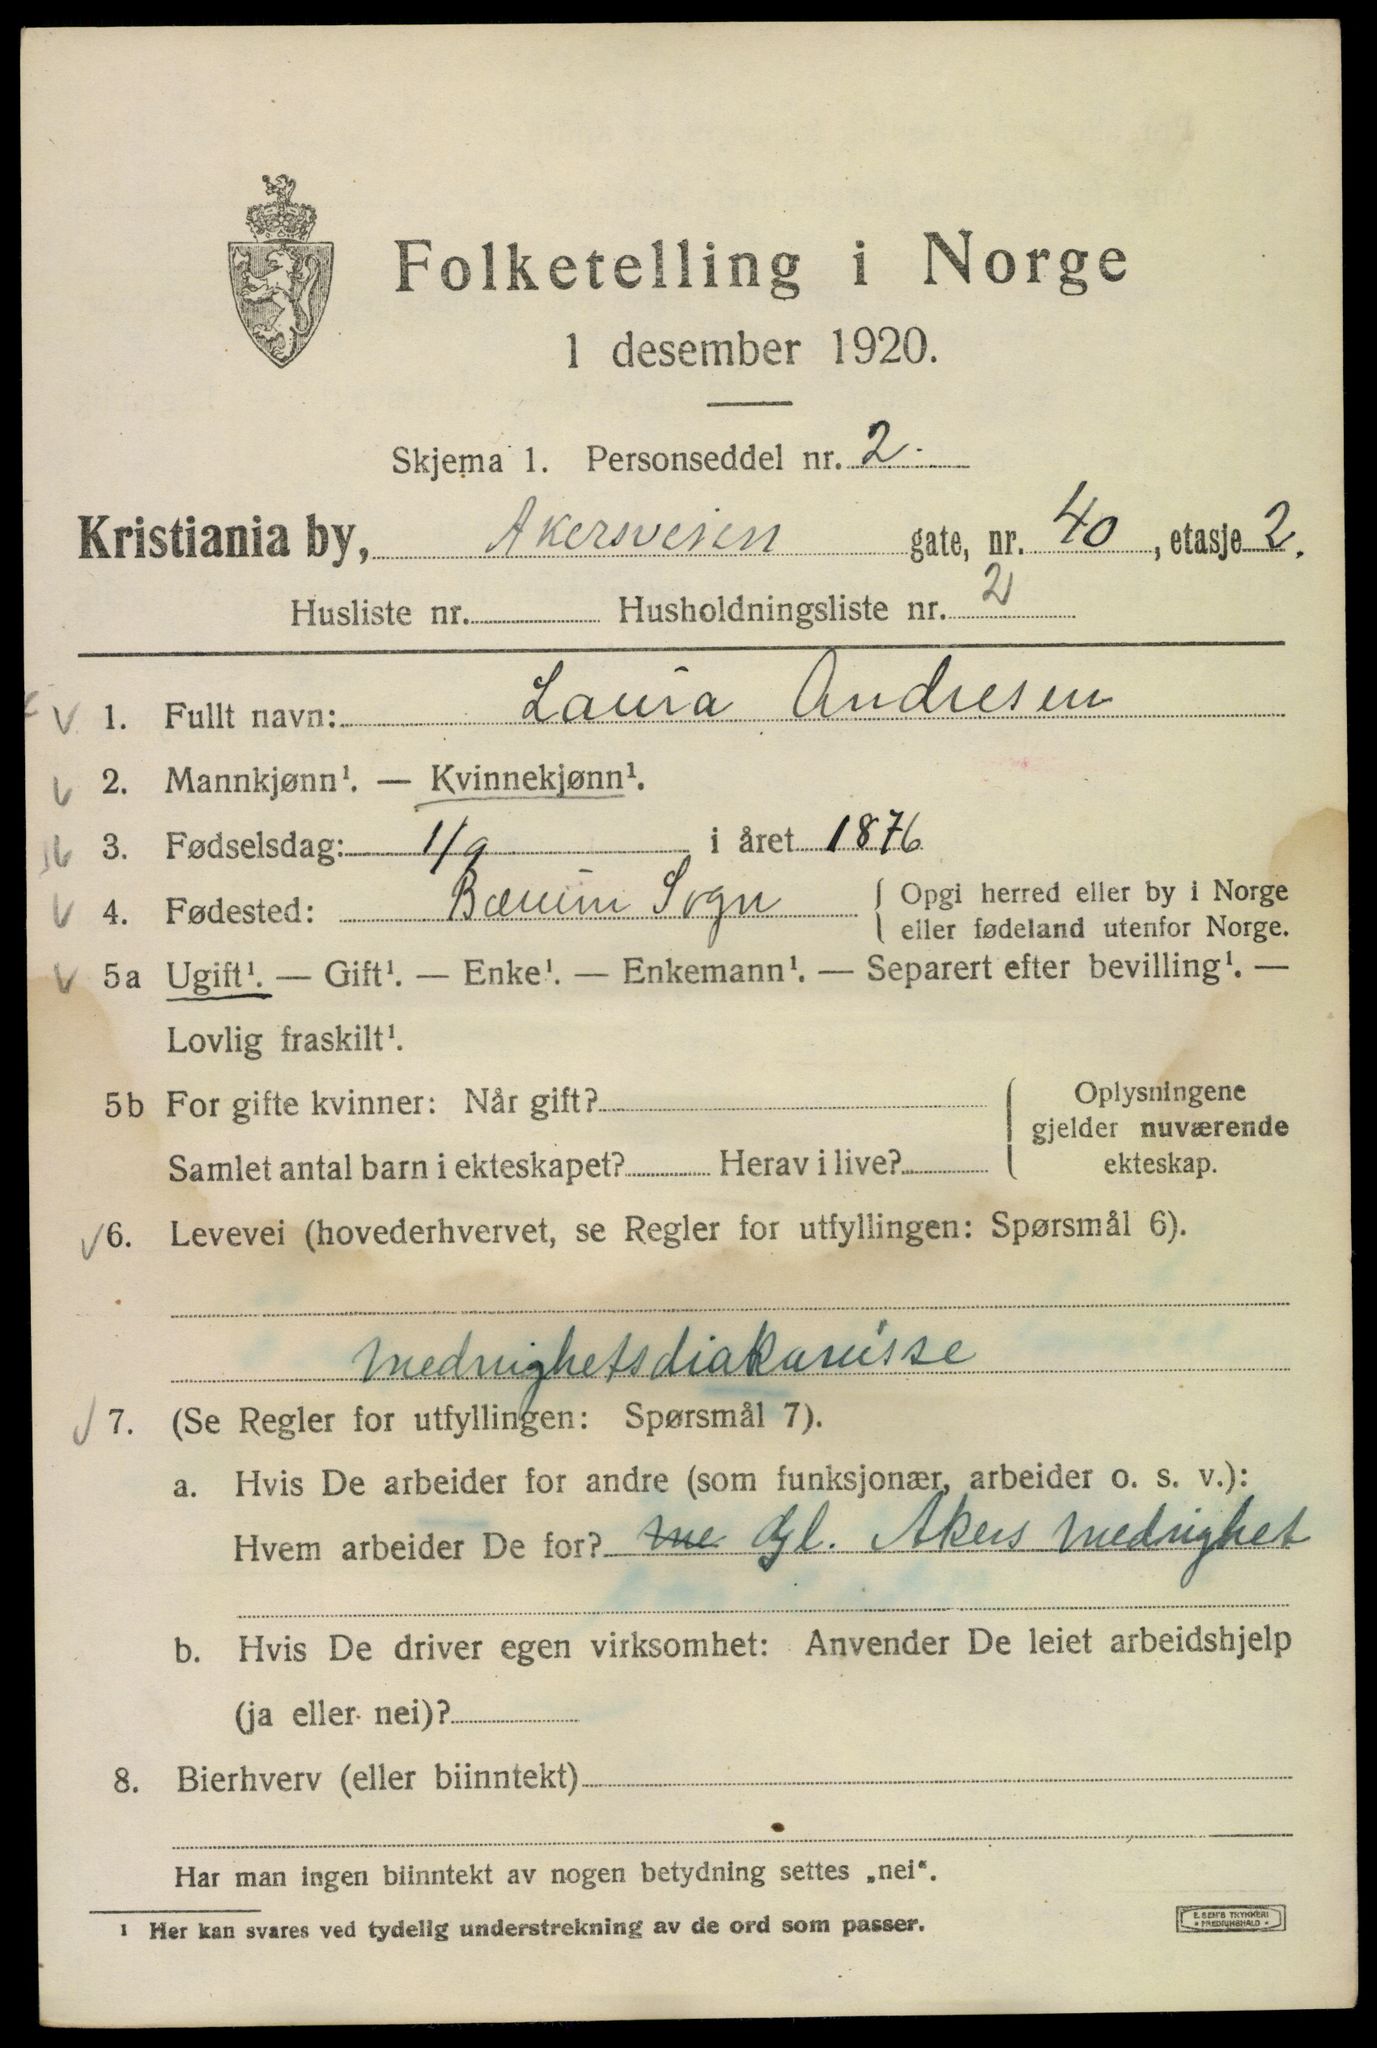 Folketelling i Norge
1 desember 1920.
Skjema 1. Personseddel nr. 2.
Kristiania by, Akersveien gate, nr. 40, etasje 2.
Husliste nr. Husholdningsliste nr. 2
1. Fullt navn: Laura Andresen
2. Mannkjønn¹. — Kvinnekjønn¹.
3. Fødselsdag: 1/9 i året 1876
4. Fødested: Bærum Sogn { Opgi herred eller by i Norge
eller fødeland utenfor Norge.
5a Ugift¹. — Gift¹. — Enke¹. — Enkemann¹. — Separert efter bevilling¹. —
Lovlig fraskilt¹.
5b For gifte kvinner: Når gift? { Oplysningene
gjelder nuværende
Samlet antal barn i ekteskapet? Herav i live? ekteskap.
6. Levevei (hovederhvervet, se Regler for utfyllingen: Spørsmål 6).
Menighetsdiakonisse
7. (Se Regler for utfyllingen: Spørsmål 7).
a. Hvis De arbeider for andre (som funksjonær, arbeider o. s. v.):
Hvem arbeider De for? me Gl. Akers Menighet
b. Hvis De driver egen virksomhet: Anvender De leiet arbeidshjelp
(ja eller nei)?
8. Bierhverv (eller biinntekt)
Har man ingen biinntekt av nogen betydning settes „nei“.
¹ Her kan svares ved tydelig understrekning av de ord som passer.
E. SEM'S TRYKKERI
FREDRIKSHALD